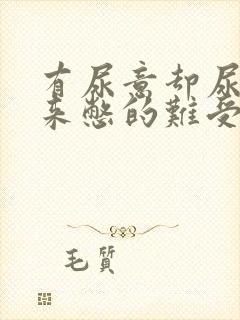 有尿意却尿
来憋的难受
毛質